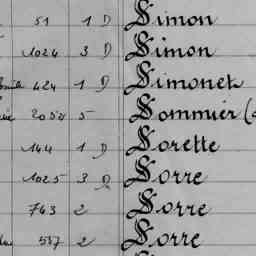 51 1 D Simon
1024 3 D Simon
424 1 D Simonet
2054 5 Sommier (
144 1 D Sorette
1025 3 D Sorre
743 2 Sorre
557 2 Sorre